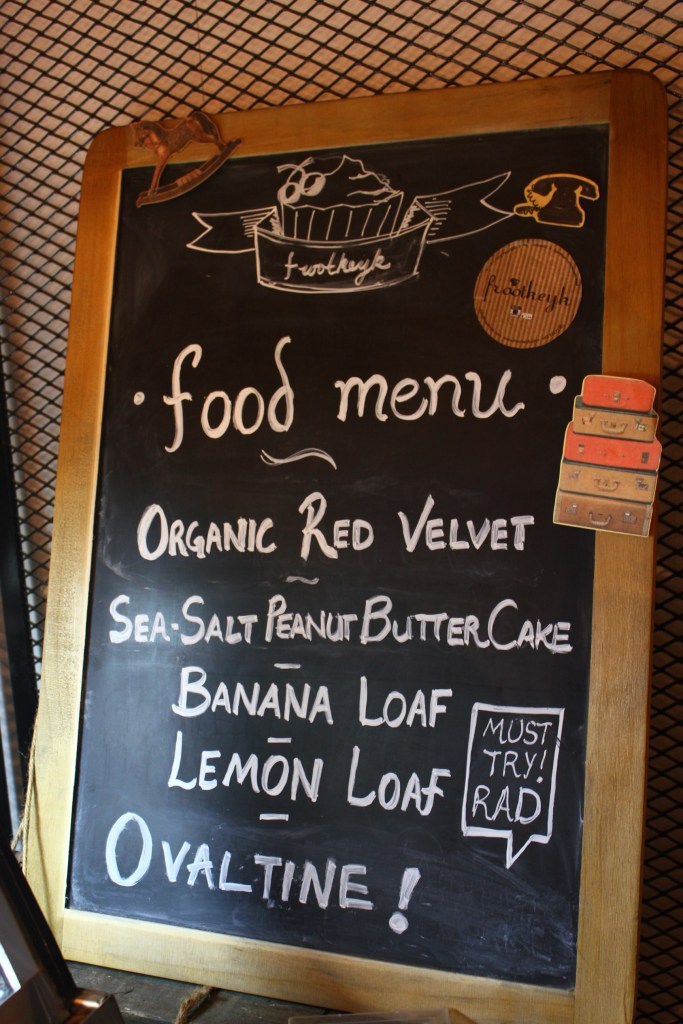 frootkeyk
frootkeyk
• food menu •
ORGANIC RED VELVET
SEA-SALT PEANUT BUTTER CAKE
BANANA LOAF
LEMON LOAF
MUST
TRY!
RAD
OVALTINE!